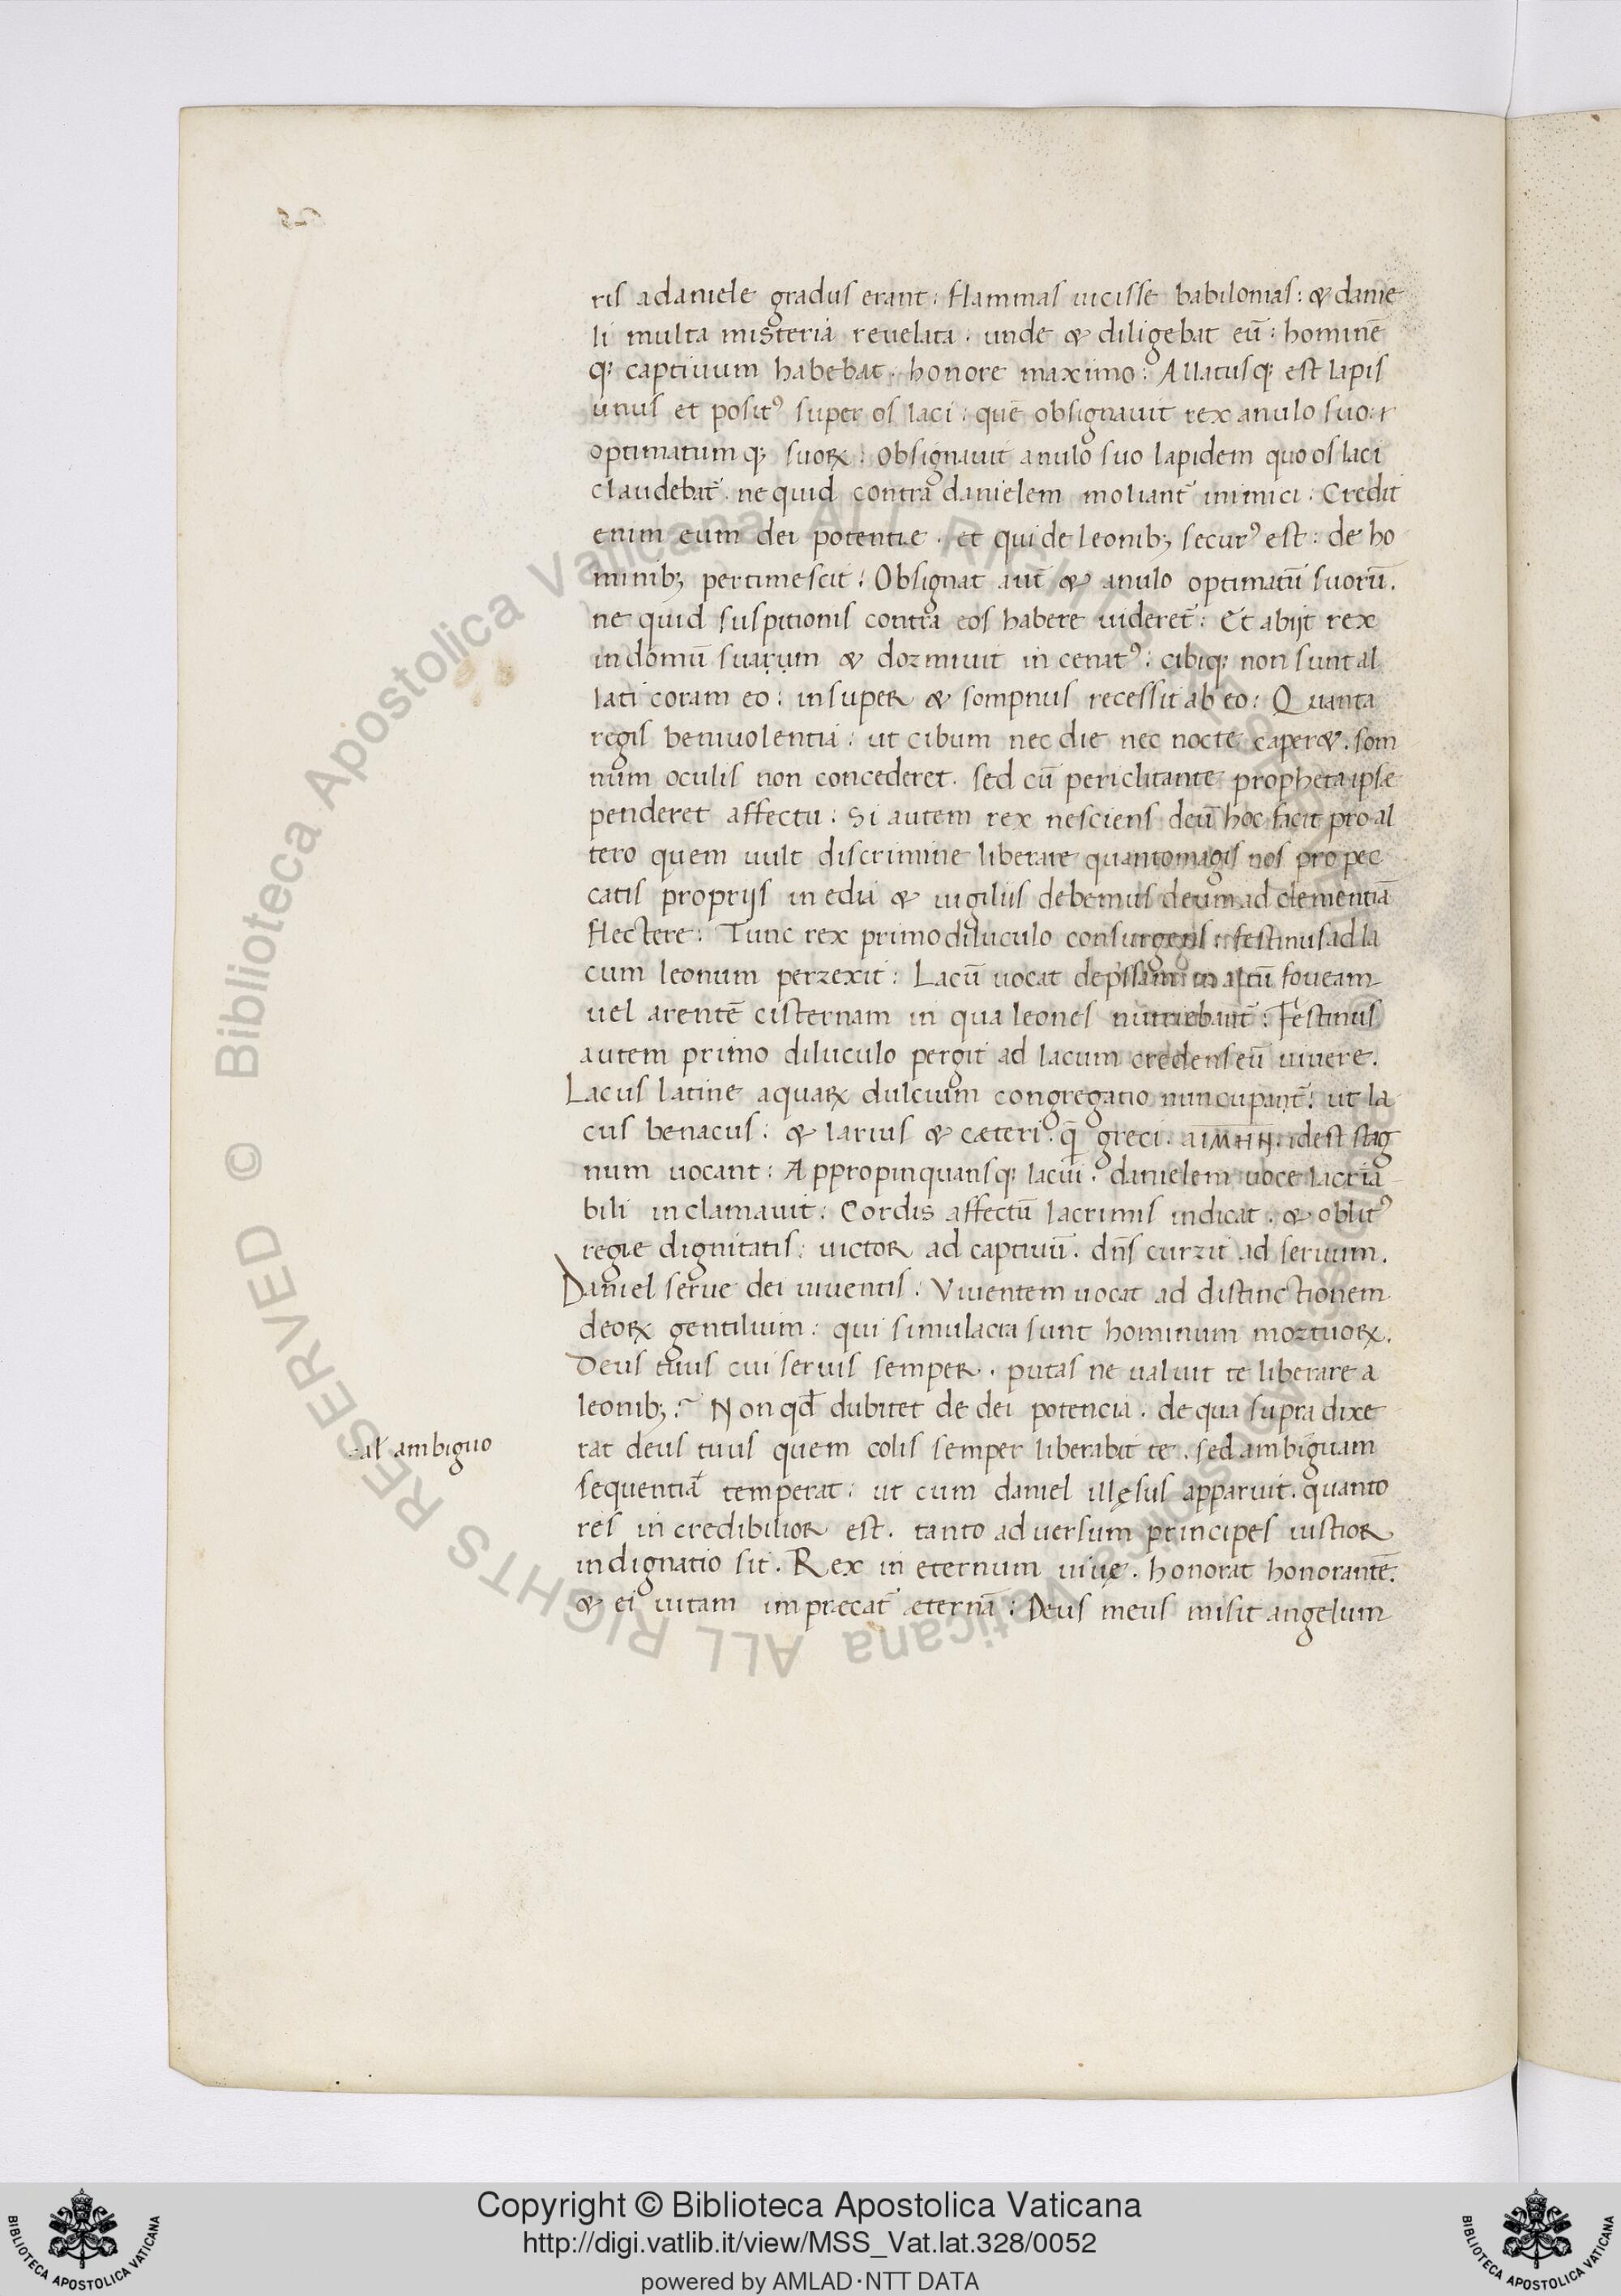 ris adaniele gradus erant: flammas uicisse babilonias: & danie
li multa misteria reuelata. unde & diligebat eū: hominē
q; captiuum habebat. honore maximo: Allatusq; est lapis
unus et positꝰ super os laci: quē obsignauit rex anulo suo:
optimatumq; suoꝝ: Obsignauit anulo suo lapidem quo os laci
claudebat̄. ne quid contra danielem moliant̄ inimici. Credit
enim eum dei potentie. et qui de leonib; securꝰ est: de ho
minib; pertimescit: Obsignat aut̄ & anulo optimatū suorū.
ne quid suspitionis contra eos habere uideret̄: Et abijt rex
in domū suaṛụm & dormiuit incenatꝰ: cibiq; non sunt al
lati coram eo: insuper & sompnus recessit ab eo: Quanta
regis beniuolentia: ut cibum nec die nec nocte caper&. som
num oculis non concederet. sed cū periclitante propheta ipse
penderet affectu: Si autem rex nesciens deū hoc facit pro al
tero quem uult discrimine liberare quantomagis nos pro pec
catis proprijs inedia & uigiliis debemus deum ad clementiā
flectere: Tunc rex primo diluculo consurgens: festinus ad la
cum leonum perrexit: Lacū uocat in altū foueam
uel arentē cisternam in qua leones nutriebant̄: Festinus
autem primo diluculo pergit ad lacum credens eū uiuere.
Lacus latine aquaꝝ dulcium congregatio nuncupant̄: ut la
cus benacus: & larius & cæteri. q̄ greci. ΑΙΜΗΗ. idest stag
num uocant: Appropinquansq; lacui. danielem uoce lacria
bili inclamauit: Cordis affectū lacrimis indicat. & oblitꝰ
regie dignitatis: uictor ad captiuū. dn̄s currit ad seruum.
Daniel serue dei uiuentis: Viuentem uocat ad distinctionem
deoꝝ gentilium: qui simulacra sunt hominum mortuoꝝ.
Deus tuus cui seruis semper. putas ne ualuit te liberare a
leonib;? Non qd̄ dubitet de dei potencia. de qua supra dixe
rat deus tuus quem colis semper liberabit te. sed ambiguam
:al̄ ambiguo
sequentiā temperat: ut cum daniel illęsus apparuit. quanto
res incredibilior est. tanto aduersum principes iustior
indignatio sit. Rex in eternum uiuę. honorat honorantē.
& ei uitam imprecat̄ æternā: Deus meus misit angelum
© Biblioteca Apostolica Vaticana ALL RIGHTS RESERVED
Copyright © Biblioteca Apostolica Vaticana
http://digi.vatlib.it/view/MSS_Vat.lat.328/0052
powered by AMLAD·NTT DATA
BIBLIOTECA APOSTOLICA VATICANA
BIBLIOTECA APOSTOLICA VATICANA